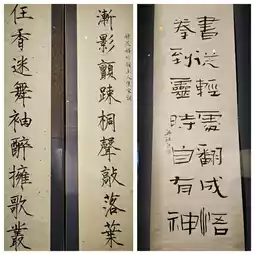 漸影顫疎桐聲敲落葉
任香迷舞袖醉擁歌叢
書從輕處翻成悟
拳到靈時自有神